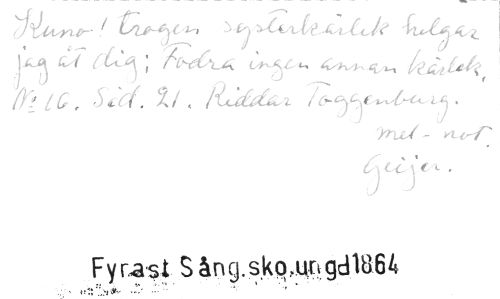 Kuno! trogen systerkärlek helgar
jag åt dig; Fodra ingen annan kärlek,
No 16. Sid. 21. Riddar Toggenburg.
mel-not.
Geijer.
Fyrast Sång.sko.ungd1864